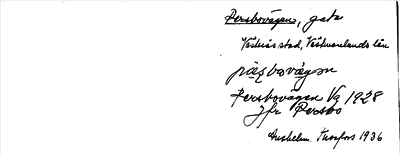 Persbovägen, gata
Västerås stad, Västmanlands län
pæ̣ṣbovägen
Persbovägen Vg 1928
Jfr Persbo
Anshelm 1936